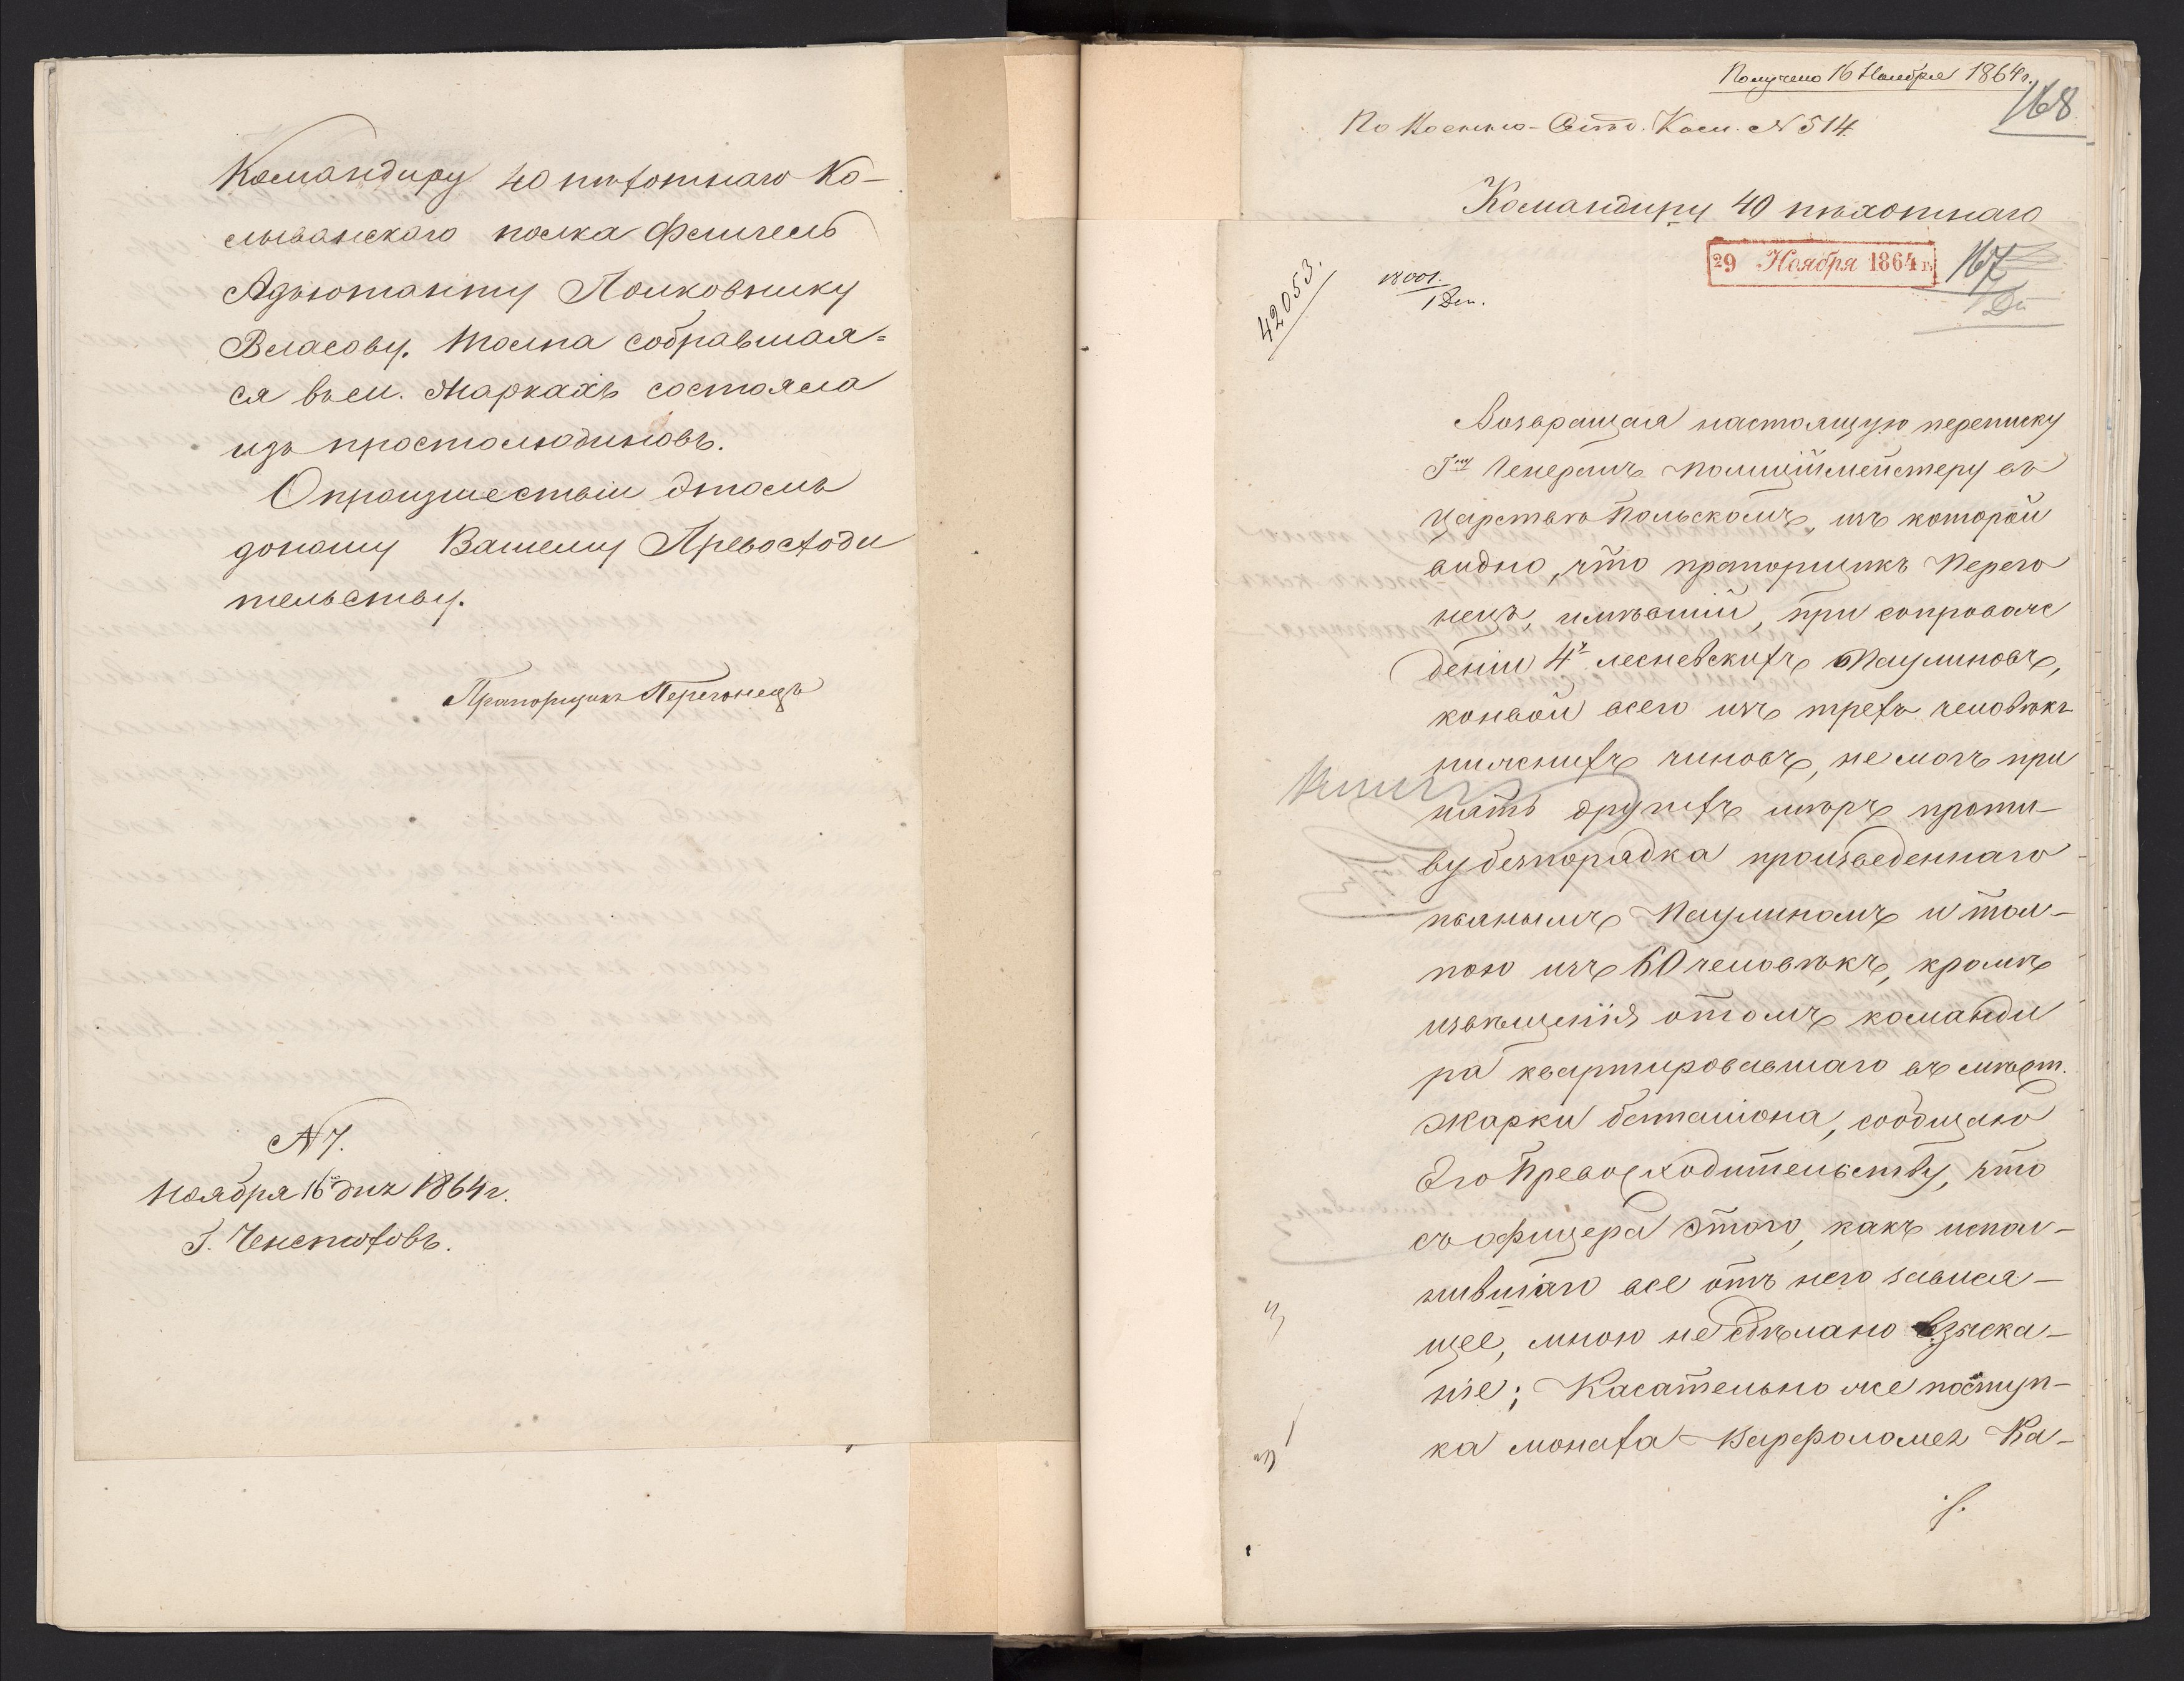 Командиру 40 пѣхотнаго Ко-
лыванскаго полка Флигель
Адъютанту Полковнику
Власову. Толпа собравшая=
ся въ м. Жаркахъ состояла
изъ простолюдиновъ.
О произшествіи этомъ
доношу Вашему Превосходи
тельству.
Прапорщикъ Перегонецъ
№ 7.
Ноября 16 дня 1864 г.
Г. Ченстоховъ.
Получено 16 Ноября 1864 г.
168
По Военно- Отд. Канц. № 514.
Командиру 40 пѣхотнаго
29 Ноября 1864 г.
167
42053.
18001.
1 Деп.
Возвращая настоящую переписку
Гну Генералъ Полицiймейстеру въ
Царствѣ Польскомъ, изъ которой
видно, что прапорщикъ Перего
нецъ, имѣвшій, при сопровож
деніи 4хъ лесневскихъ Паулиновъ,
конвой всего изъ трехъ человѣкъ
нижнихъ чиновъ, не могъ при
нять другихъ мѣръ проти-
ву безпорядка произведеннаго
пьянымъ Паулиномъ и тол-
пою изъ 60 человѣкъ, кромѣ
извѣщенія о томъ команди
ра квартировавшаго въ мѣст.
Жарки баталіона, сообщаю
Его Превосходительству, что
съ офицера этого, какъ испол-
нившаго все отъ него завися-
щее, мною не сдѣлано взыска-
ніе; Касательно же поступ-
ка монаха Варфоломея Ка-